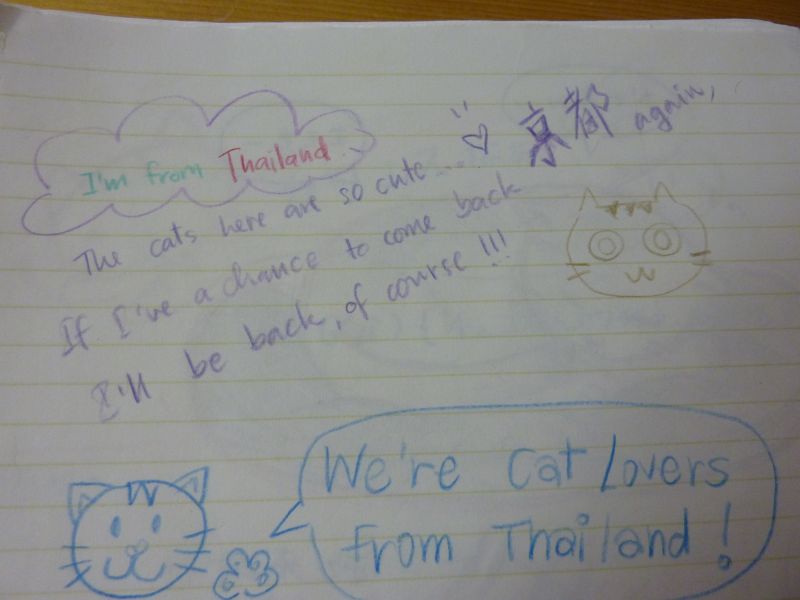 I'm from Thailand
The cats here are so cute....♡
If I've a chance to come back 京都 again,
I'll be back, of course !!!
We're Cat Lovers
from Thailand!